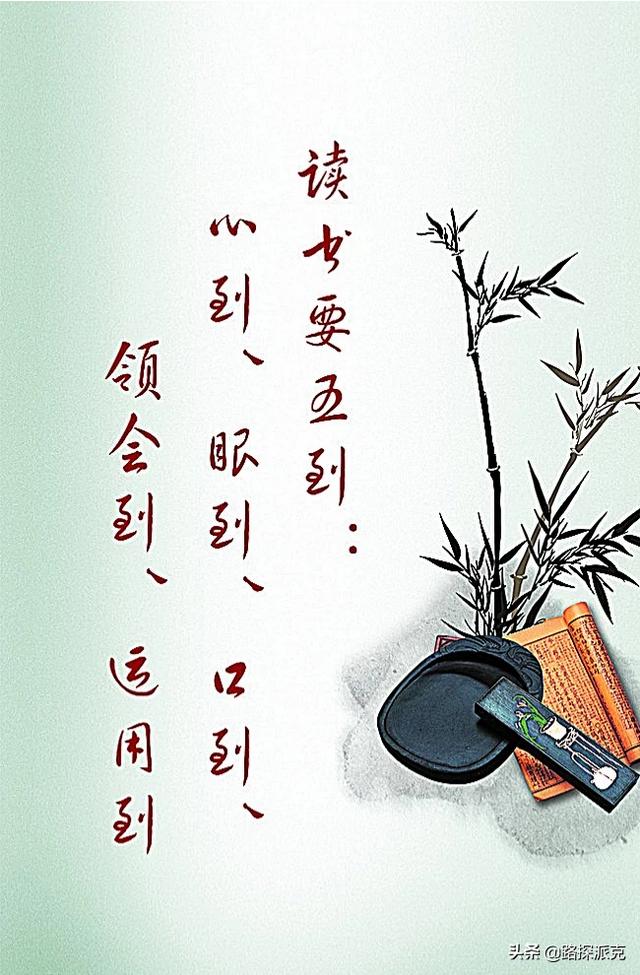 读书要五到：
心到、眼到、口到、
领会到、运用到
头条 @路探派克